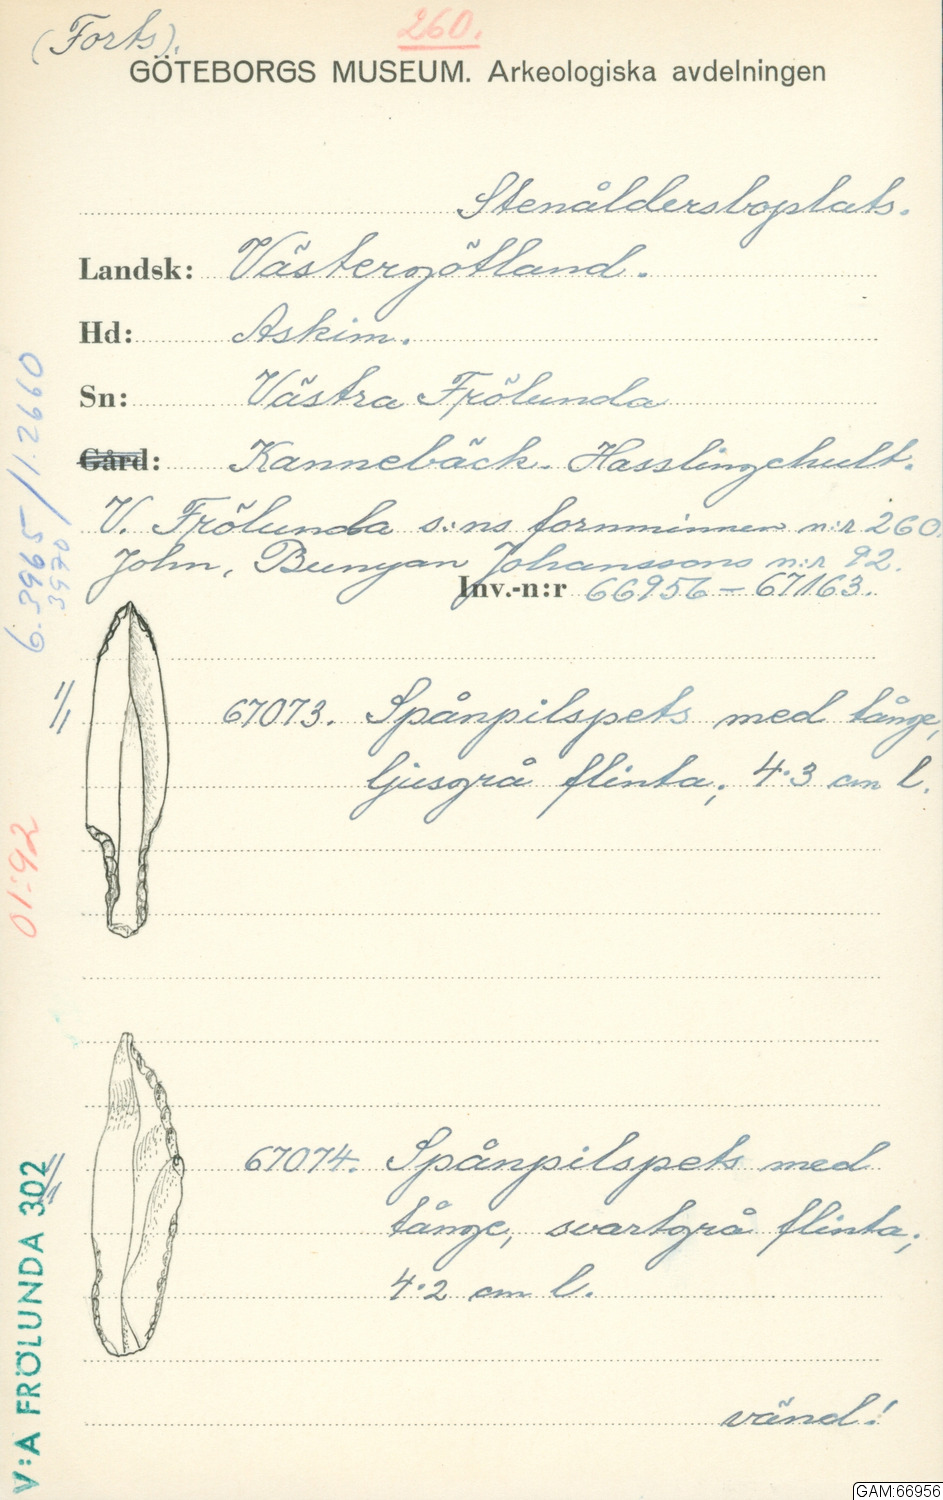 (Forts).
260.
GÖTEBORGS MUSEUM. Arkeologiska avdelningen
Stenåldersboplats.
Landsk: Västergötland.
Hd: Askim.
Sn: Västra Frölunda
Gård: Kannebäck. Hasslingehult.
V. Frölunda s:ns fornminnen n:r 260.
John, Bunyan Johanssons n:r 92.
Inv.-n:r 66956–67163.
1/1
67073. Spånpilspets med tånge,
ljusgrå flinta; 4·3 cm l.
1/1
67074. Spånpilspets med
tånge, svartgrå flinta;
4·2 cm l.
vänd!
6.3965/1.2660
3970
01:92
V:A FRÖLUNDA 302
GAM:66956